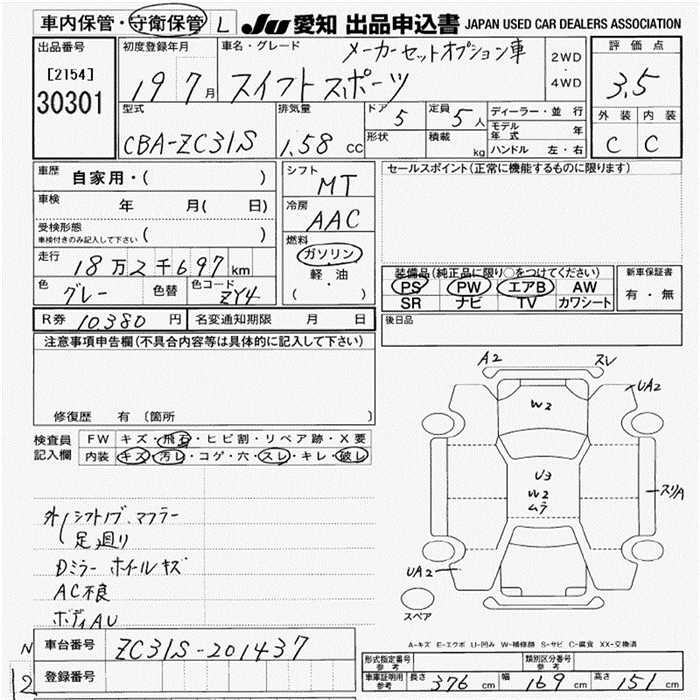 車内保管・守衛保管 L JU 愛知 出品申込書 JAPAN USED CAR DEALERS ASSOCIATION
出品番号 初度登録年月 車名・グレード メーカーセットオプション車 2WD・4WD 評価点
[2154] 19 7月 スイフトスポーツ 3.5
30301
型式 排気量 ドア 5 定員 5人 ディーラー・並行 外装 内装
CBA-ZC31S 1.58 CC 形状 積載 kg モデル年式 年 C C
ハンドル 左・右
車歴 自家用・( ) シフト MT セールスポイント(正常に機能するものに限ります)
車検 年 月( 日) 冷房 AAC
受検形態 ( )
車検付きのみ記入して下さい
燃料 ガソリン
走行 18万2千697km 軽・油 装備品(純正品に限り○をつけてください) 新車保証書
色 グレー 色替 色コード ZY4 ( ) PS PW エアB AW 有・無
SR ナビ TV カワシート
R券 10380円 名変通知期限 月 日 後日品
注意事項申告欄(不具合内容等は具体的に記入して下さい)
修復歴 有 〔箇所
検査員 FW キズ・飛石・ヒビ割・リペア跡・X要
記入欄 内装 キズ・汚レ・コゲ・穴・スレ・キレ・破レ
外/シフトノブ、マフラー
足廻り
Dミラー ホイルキズ
AC不良
ボディAU
A2 スレ
W2 UA2
U3
W2
ムラ
スリA
UA2
スペア
A-キズ E-エクボ U-凹み W-補修顔 S-サビ C-腐食 XX-交換済
N 車台番号 ZC31S-201437
12 登録番号
形式指定番号 参考 類別区分番号 参考
車庫証明用 参考 長さ 376 cm 幅 169 cm 高さ 151 cm